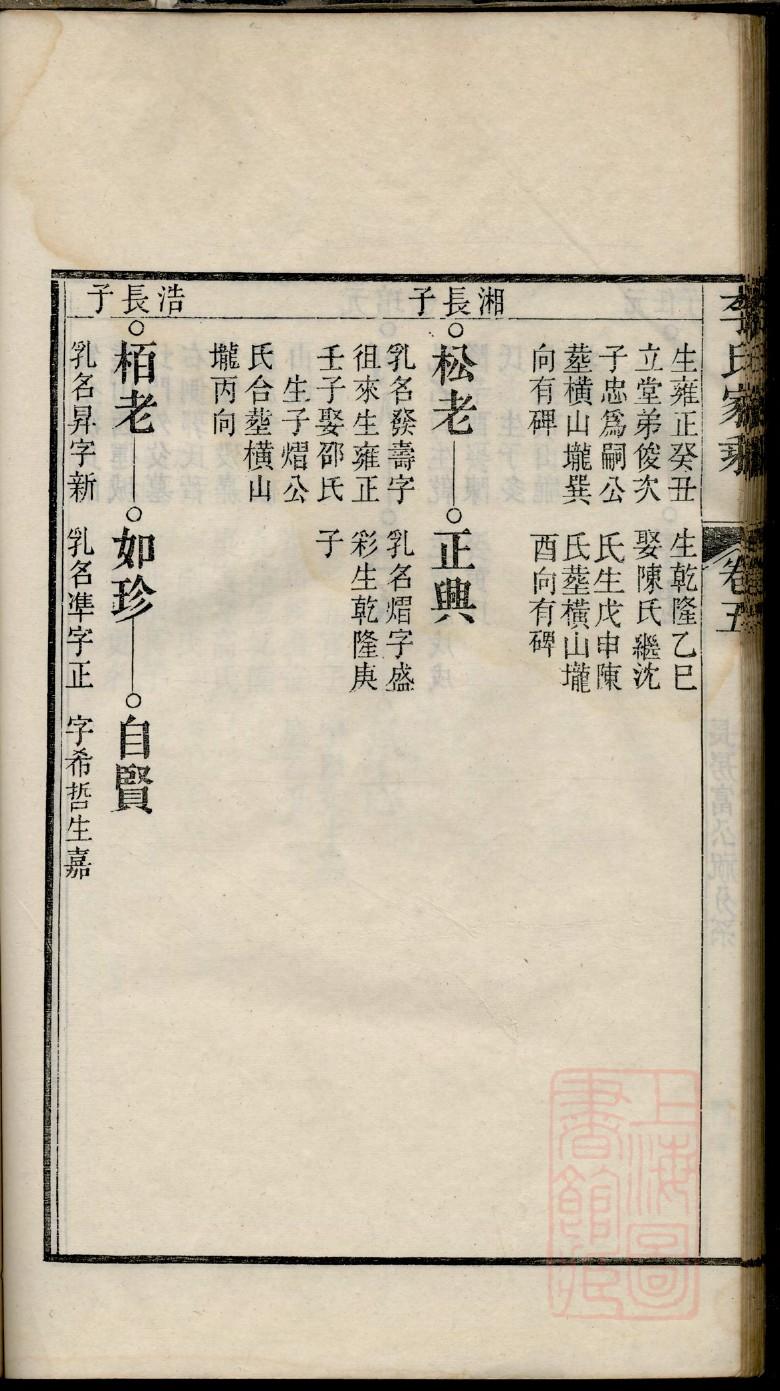 李氏家乘
卷五
生雍正癸丑
立堂弟俊次
子忠爲嗣公
塟橫山壠巽
向有碑
生乾隆乙巳
娶陳氏繼沈
氏生戊申陳
氏塟橫山壠
酉向有碑
湘長子
松老
乳名發壽字
徂來生雍正
壬子娶邵氏
生子熠公
氏合塟橫山
壠丙向
正興
乳名熠字盛
彩生乾隆庚
子
浩長子
栢老
乳名昇字新
如珍
乳名準字正
自賢
字希哲生嘉
上海圖
書館藏